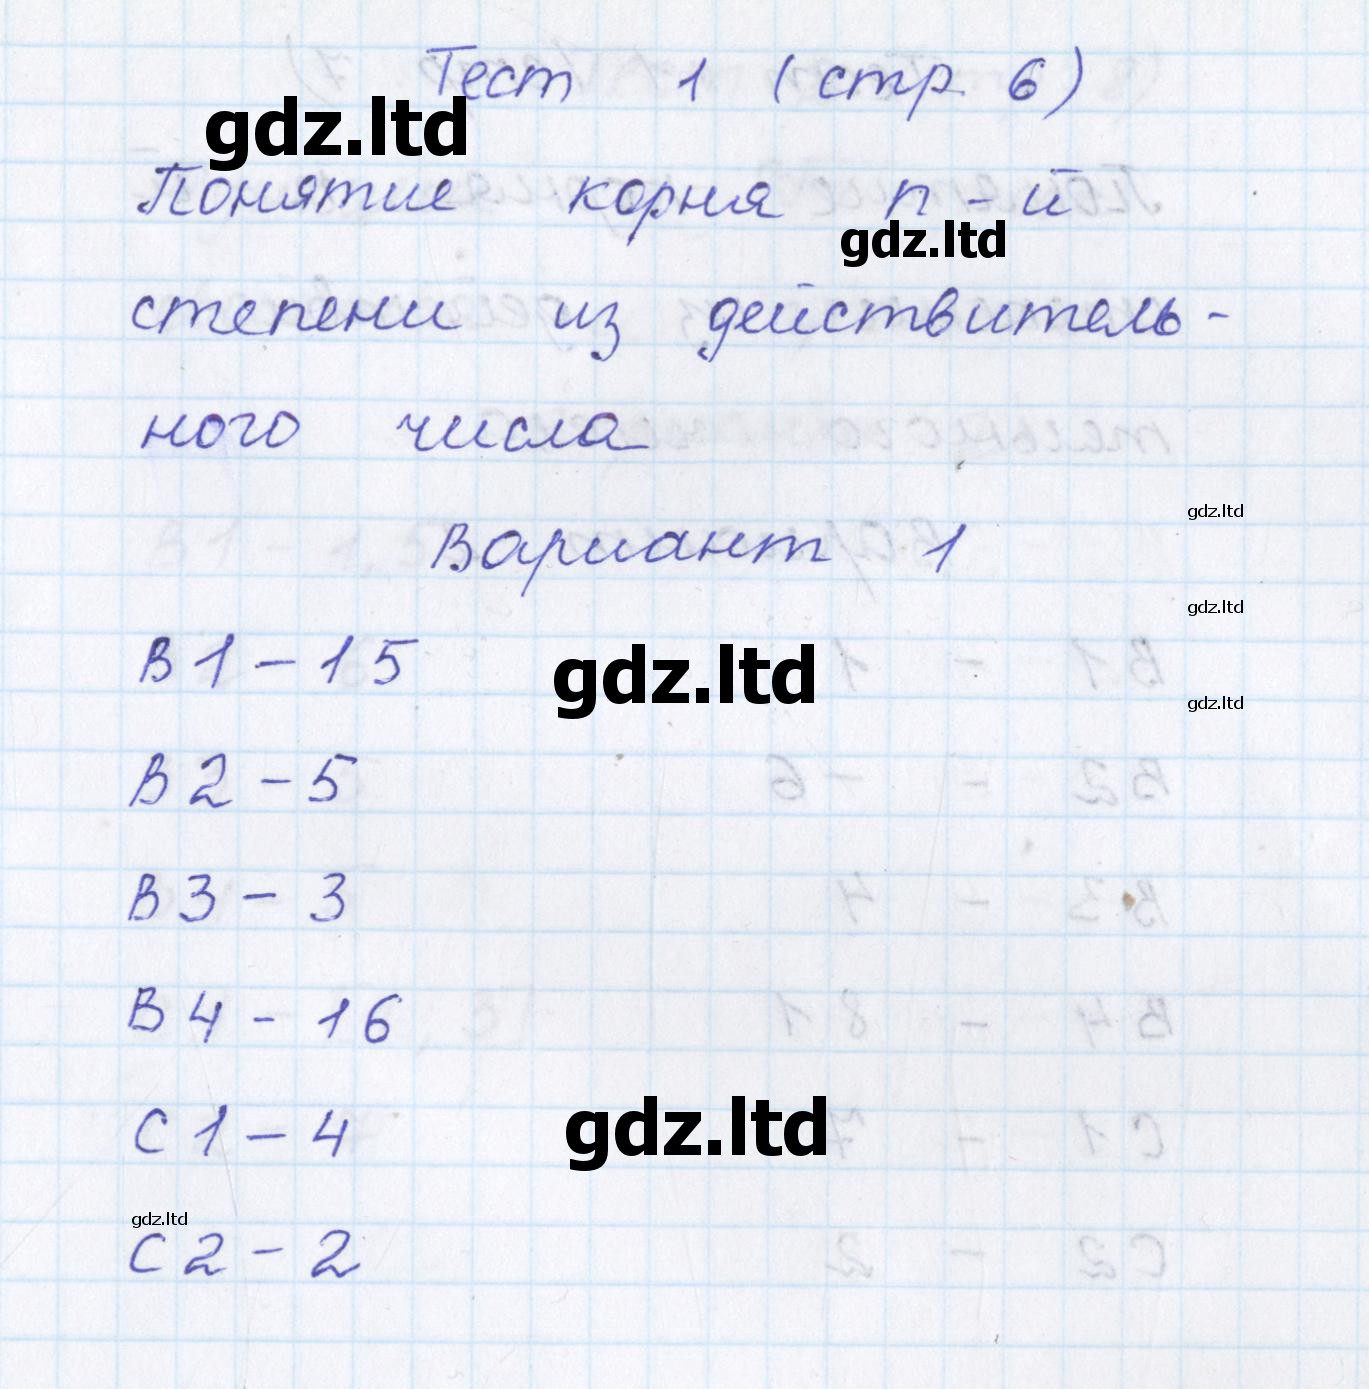 Тест 1 (стр. 6)
gdz.ltd
Понятие корня n-й
gdz.ltd
степени из действитель-
ного числа
gdz.ltd
Вариант 1
gdz.ltd
В1 - 15
gdz.ltd
gdz.ltd
В2 - 5
В3 - 3
В4 - 16
С1 - 4
gdz.ltd
gdz.ltd
С2 - 2